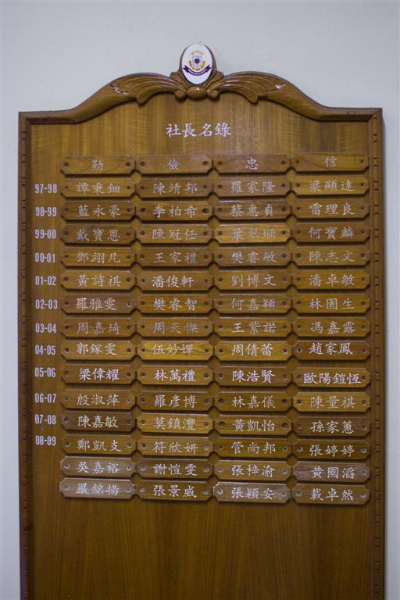 社長名錄
勤 儉 忠 信
97-98 譚秉鈿 陳靖邦 羅家隆 梁顯達
98-99 藍永豪 李柏希 蔡惠貞 雷理良
99-00 戴寶恩 陳冠任 葉懿珊 何寶麟
00-01 鄧翊凡 王家禮 樊睿敏 陳志文
01-02 黃詩祺 潘俊軒 劉博文 潘卓敏
02-03 羅雅雯 樊睿智 何嘉穎 林囿生
03-04 周嘉琦 周天傑 王紫諾 馮嘉露
04-05 郭鎵雯 伍妙嬋 周倩蕾 趙家鳳
05-06 梁偉耀 林萬禮 陳浩賢 歐陽鎧恆
06-07 殷淑萍 羅彥博 林嘉儀 陳量祺
07-08 陳嘉敏 莫鎮灃 黃凱怡 孫家蕙
08-09 鄭凱支 符欣妍 管尚邦 張婷婷
吳嘉裕 謝愷雯 張梓渝 黃國滔
張景威 張穎安 戴卓然